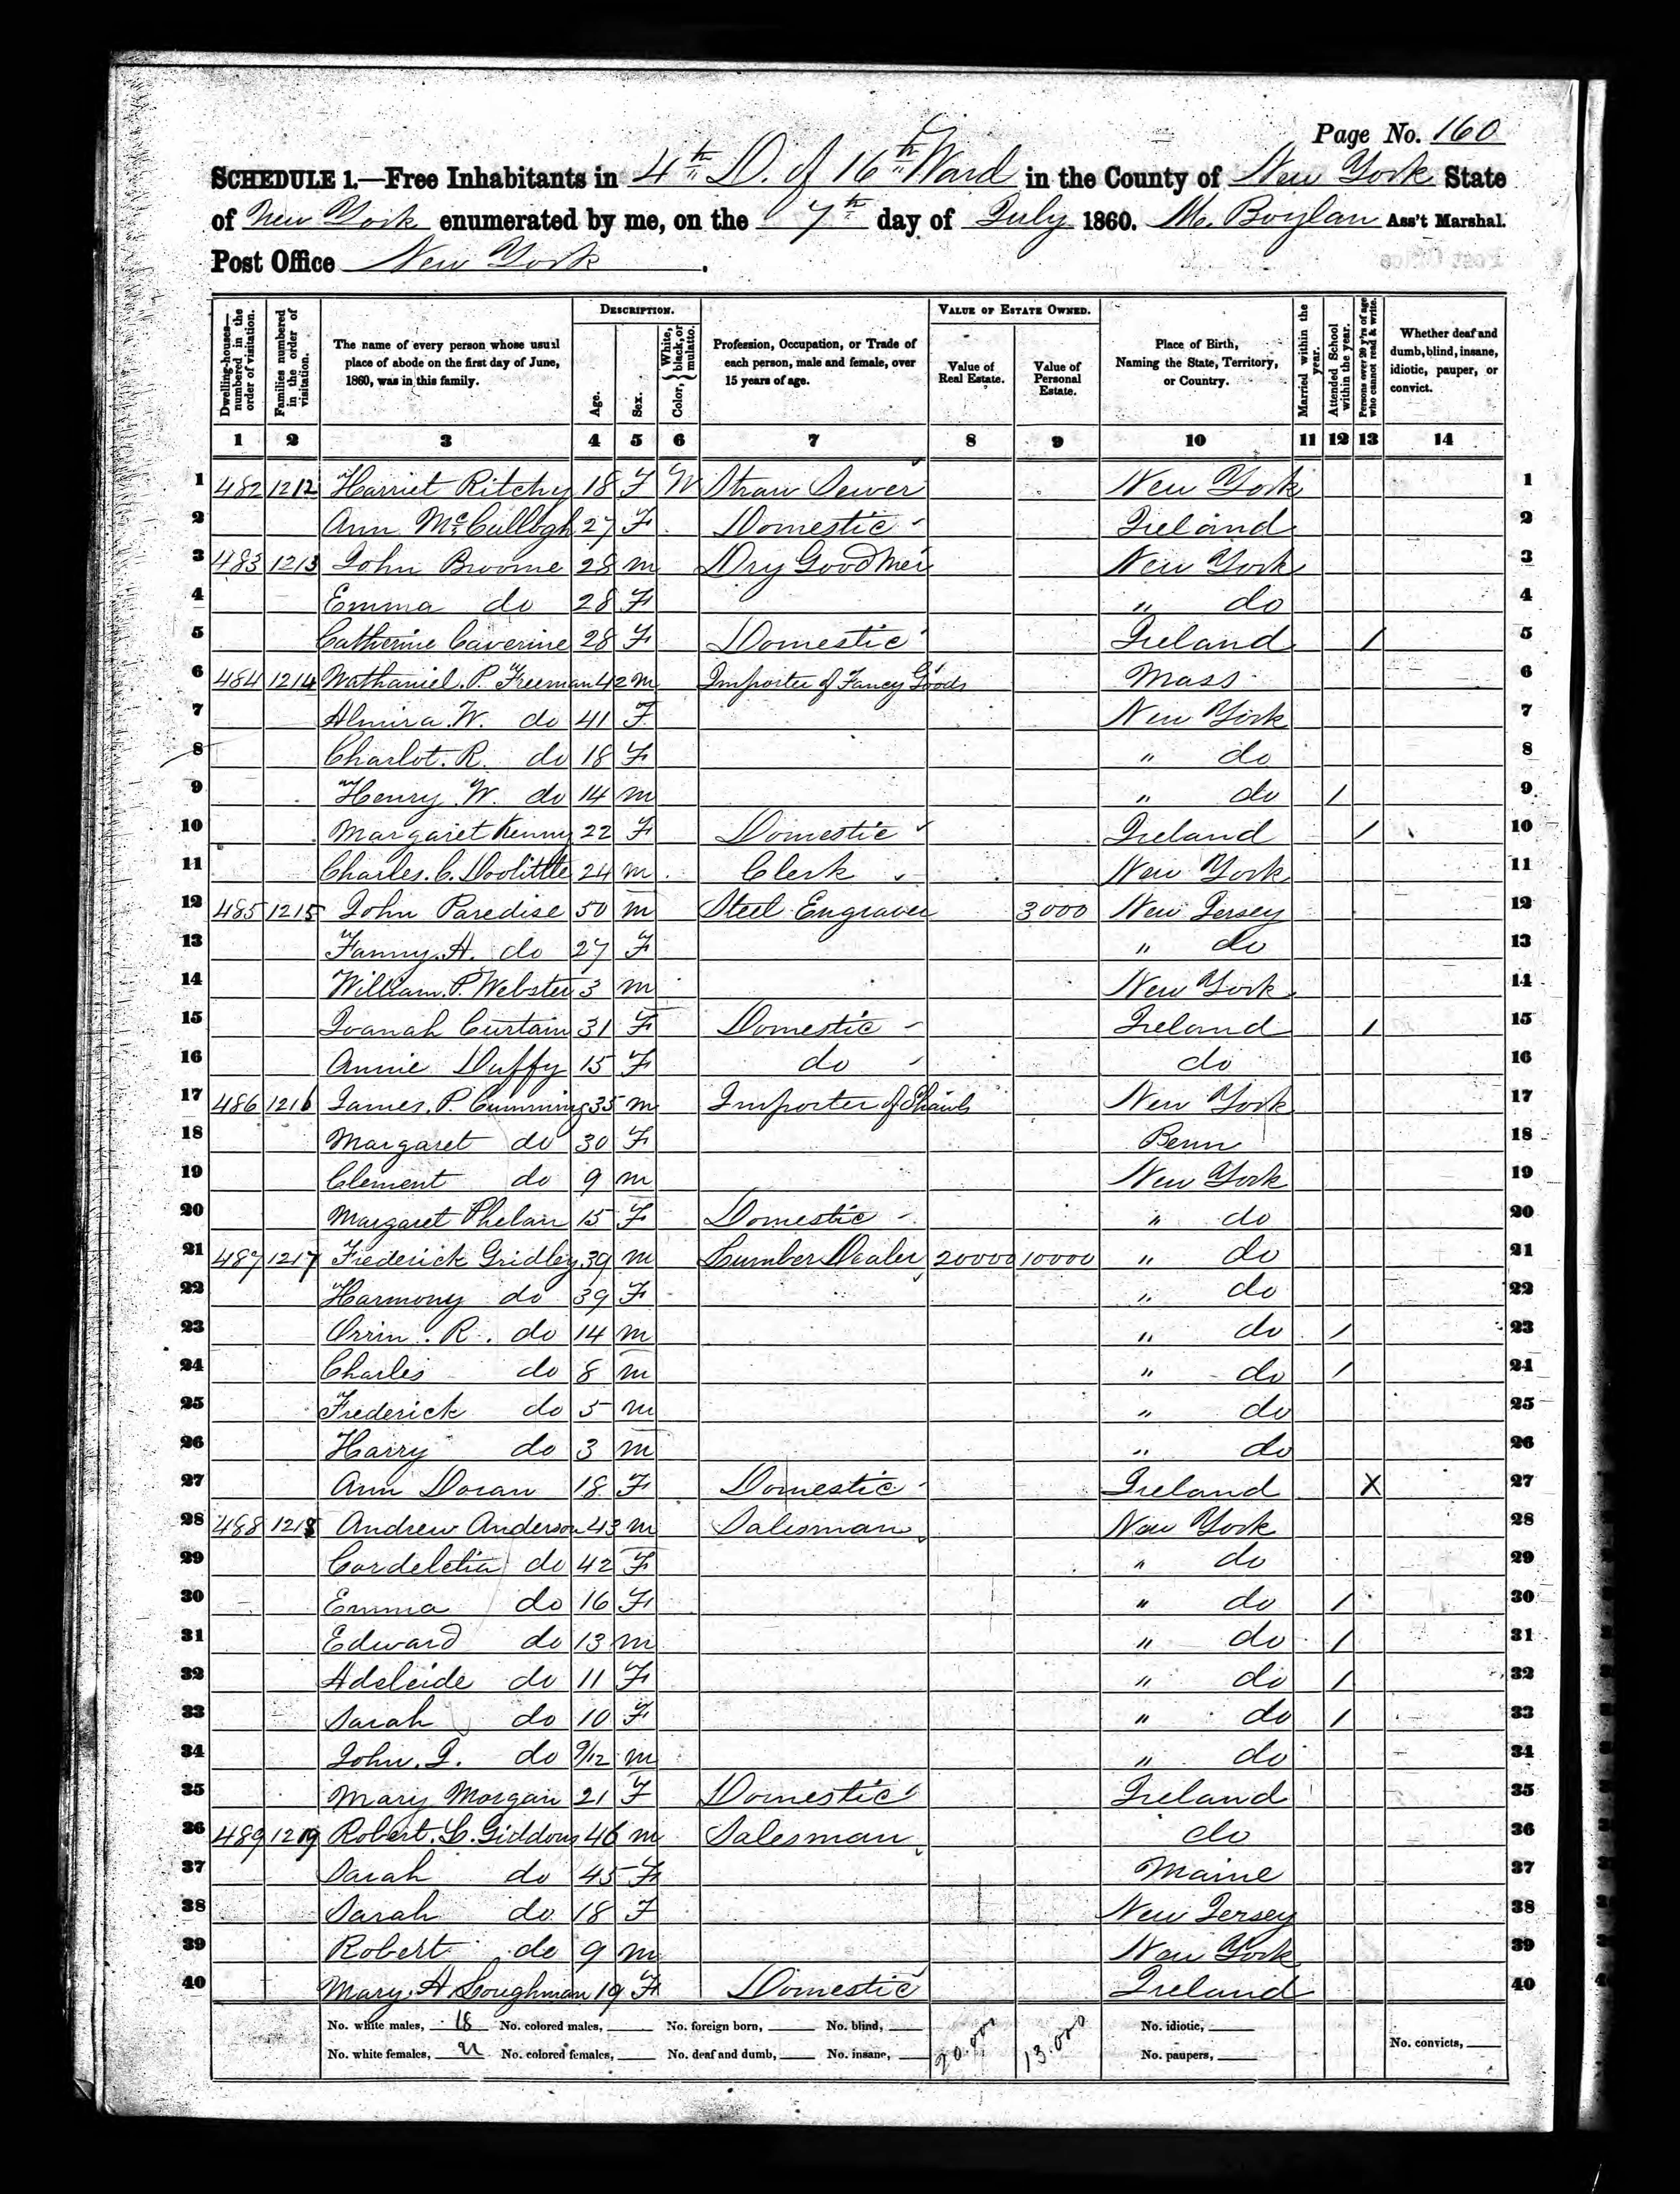 Page No. 160
SCHEDULE 1.—Free Inhabitants in 4th D. of 16th Ward in the County of New York State
of New York enumerated by me, on the 7th day of July 1860. M. Boylan Ass't Marshal.
Post Office New York.
Dwelling-houses—numbered in the order of visitation.
Families numbered in the order of visitation.
The name of every person whose usual place of abode on the first day of June, 1860, was in this family.
DESCRIPTION.
Age.
Sex.
Color, } White, black, or mulatto.
Profession, Occupation, or Trade of each person, male and female, over 15 years of age.
VALUE OF ESTATE OWNED.
Value of Real Estate.
Value of Personal Estate.
Place of Birth, Naming the State, Territory, or Country.
Married within the year.
Attended School within the year.
Persons over 20 y'rs of age who cannot read & write.
Whether deaf and dumb, blind, insane, idiotic, pauper, or convict.
1 2 3 4 5 6 7 8 9 10 11 12 13 14
1 482 1212 Harriet Ritchy 18 F W Straw Sewer New York 1
2 Ann McCullogh 27 F Domestic Ireland 2
3 483 1213 John Broome 28 m Dry Good Mer New York 3
4 Emma do 28 F " do 4
5 Catherine Caverine 28 F Domestic Ireland / 5
6 484 1214 Nathaniel. P. Freeman 42 m Importer of Fancy Goods Mass 6
7 Almira W. do 41 F New York 7
8 Charlot. R. do 18 F " do 8
9 Henry W. do 14 m " do / 9
10 Margaret Kenny 22 F Domestic Ireland / 10
11 Charles. C. Doolittle 24 m Clerk New York 11
12 485 1215 John Paredise 50 m Steel Engraver 3000 New Jersey 12
13 Fanny. A. do 27 F " do 13
14 William. P. Webster 3 m New York 14
15 Joanah Curtain 31 F Domestic Ireland / 15
16 Annie Duffy 15 F do do 16
17 486 1216 James. P. Cumming 35 m Importer of Shawls New York 17
18 Margaret do 30 F Penn 18
19 Clement do 9 m New York 19
20 Margaret Phelan 15 F Domestic " do 20
21 487 1217 Frederick Gridley 39 m Lumber Dealer 20000 10000 " do 21
22 Harmony do 39 F " do 22
23 Orrin. R. do 14 m " do / 23
24 Charles do 8 m " do / 24
25 Frederick do 5 m " do 25
26 Harry do 3 m " do 26
27 Ann Doran 18 F Domestic Ireland X 27
28 488 1218 Andrew Anderson 43 m Salesman New York 28
29 Cordeletia do 42 F " do 29
30 Emma do 16 F " do / 30
31 Edward do 13 m " do / 31
32 Adeleide do 11 F " do / 32
33 Sarah do 10 F " do / 33
34 John. I. do 9/12 m " do 34
35 Mary Morgan 21 F Domestic Ireland 35
36 489 1219 Robert. L. Giddons 46 m Salesman do 36
37 Sarah do 45 F Maine 37
38 Sarah do 18 F New Jersey 38
39 Robert do 9 m New York 39
40 Mary. A Loughman 19 F Domestic Ireland 40
No. white males, 18 No. colored males, No. foreign born, No. blind, 20.000 13.000 No. idiotic,
No. white females, 22 No. colored females, No. deaf and dumb, No. insane, No. paupers, No. convicts,